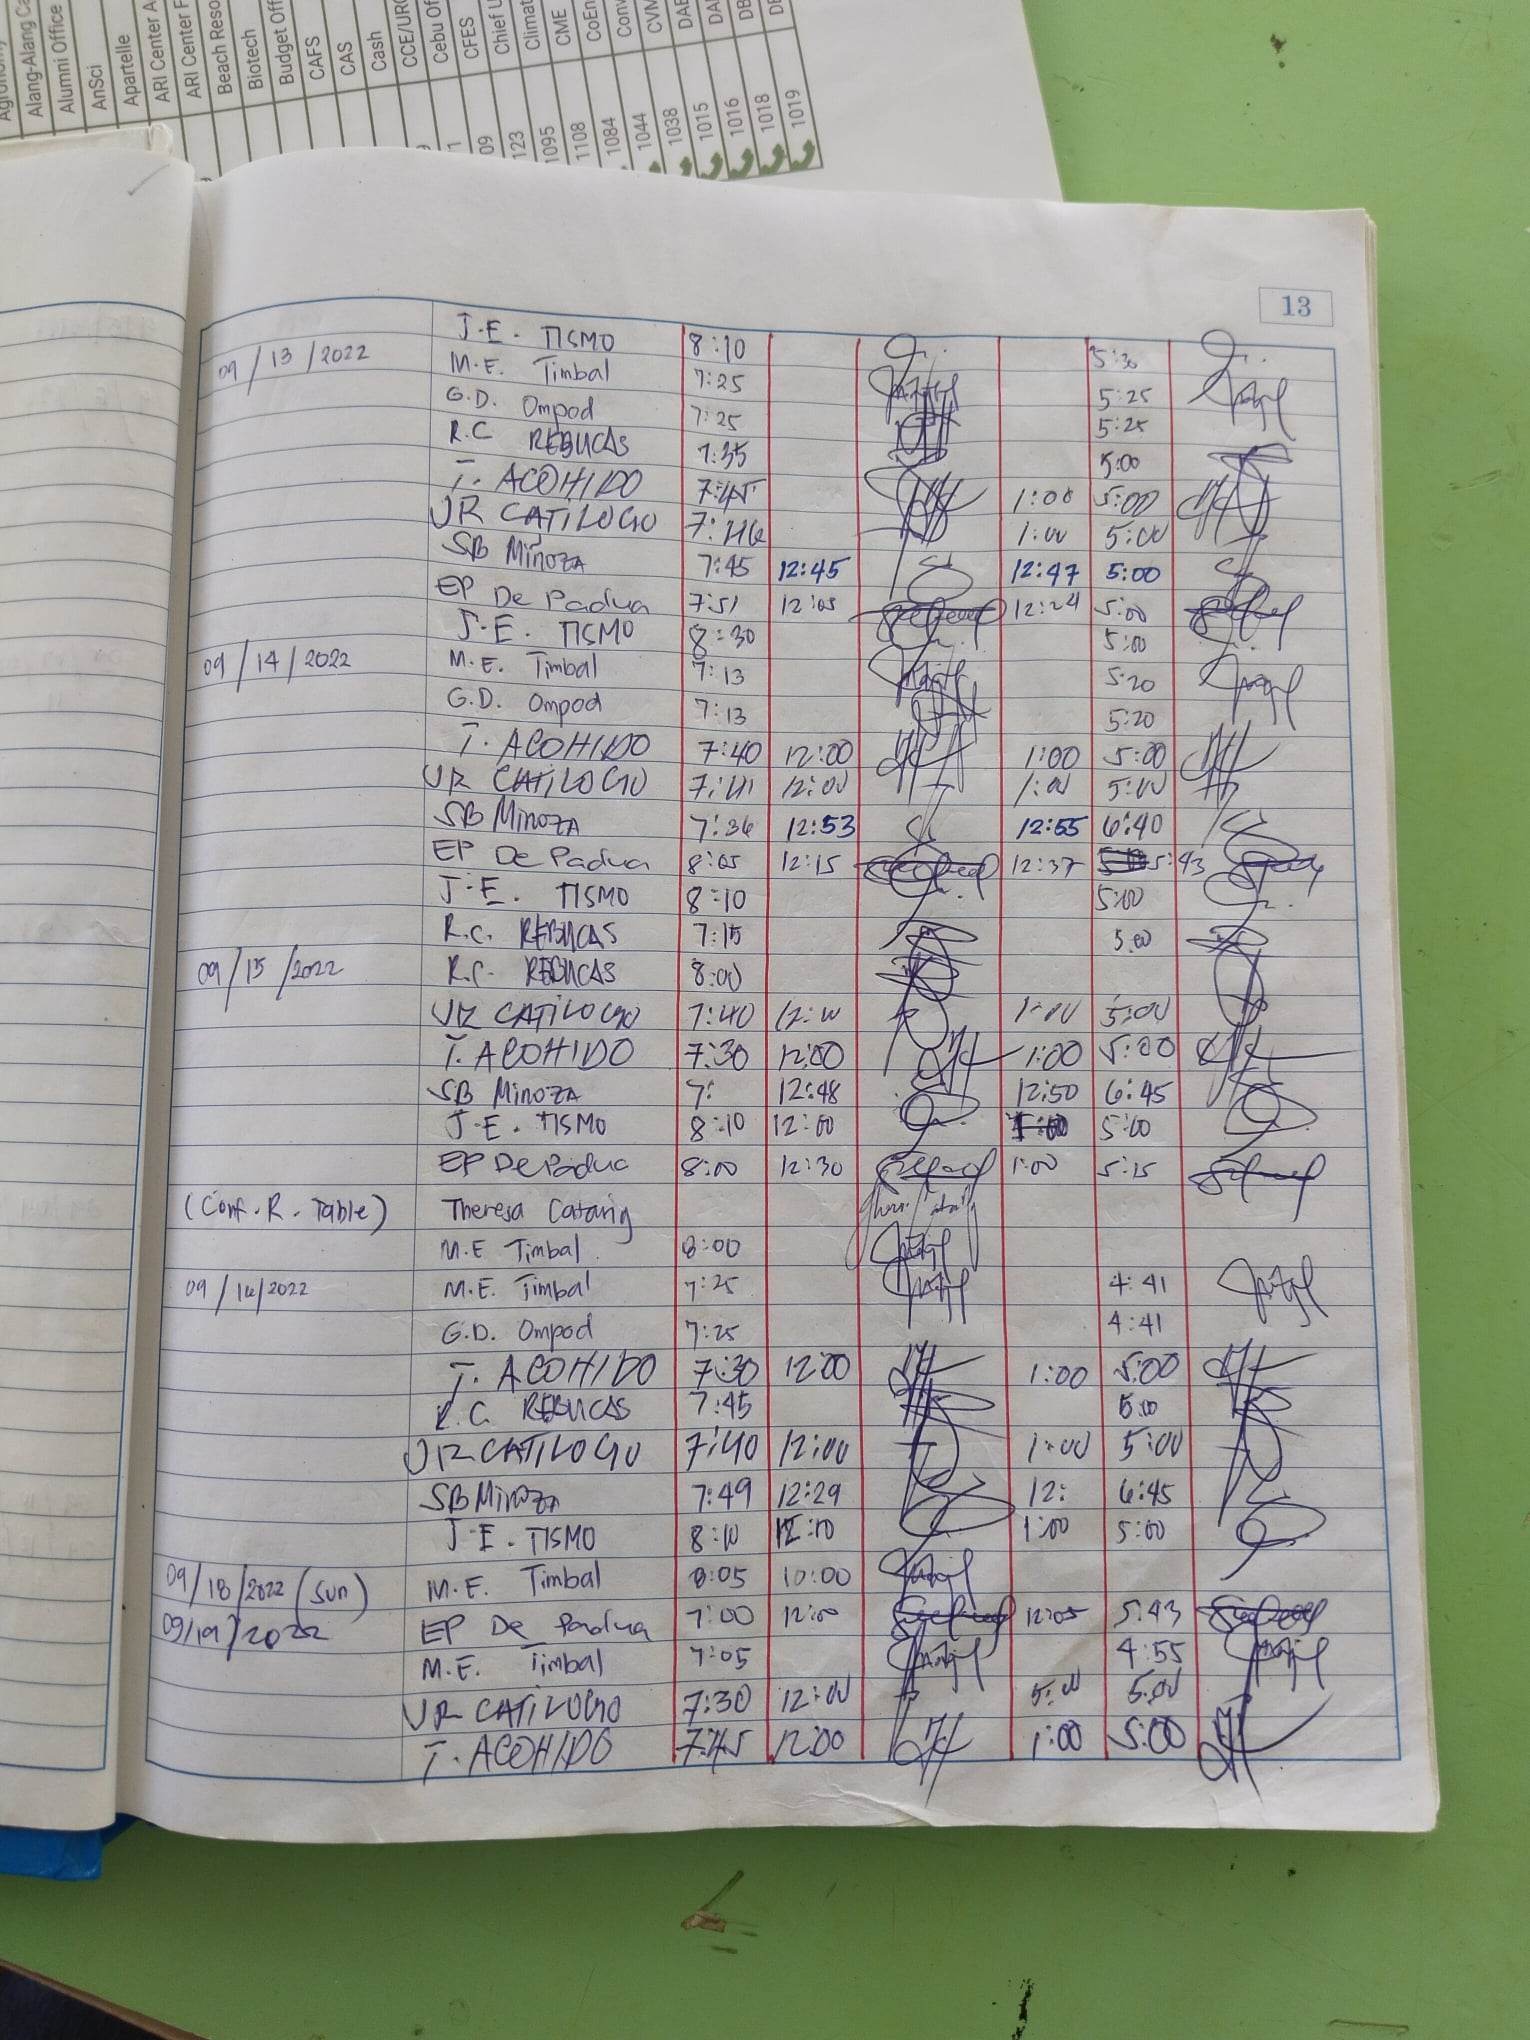 Alang-Alang
Alumni Office
AnSci
Apartelle
ARI Center A
ARI Center F
Beach Reso
Biotech
Budget Off
CAFS
CAS
Cash
CCE/URC
Cebu Of
CFES
Chief
Climat
CME
CoEn
Conv
CVM
DAE
DA
DB
123
1095
1108
1084
1044
1038
1015
1016
1018
1019
13
J.E. TISMO 8:10 5:30
09/13/2022 M.E. Timbal 7:25 5:25
G.D. Ompod 7:25 5:25
R.C REBUCAS 7:35 5:00
T. ACOHIDO 7:45 1:00 5:00
JR CATILOGO 7:46 1:00 5:00
SB Minoza 7:45 12:45 12:47 5:00
EP De Padua 7:51 12:05 12:24 5:00
J.E. TISMO 8:30 5:00
09/14/2022 M.E. Timbal 7:13 5:20
G.D. Ompod 7:13 5:20
T. ACOHIDO 7:40 12:00 1:00 5:00
JR CATILOGO 7:41 12:00 1:00 5:00
SB Minoza 7:36 12:53 12:55 6:40
EP De Padua 8:05 12:15 12:37 5:43
J.E. TISMO 8:10 5:00
R.C. REBUCAS 7:15 5:00
09/15/2022 R.C. REBUCAS 8:00
JR CATILOGO 7:40 12:00 1:00 5:00
T. ACOHIDO 7:30 12:00 1:00 5:00
SB Minoza 7: 12:48 12:50 6:45
J.E. TISMO 8:10 12:00 5:00
EP De Padua 8:00 12:30 1:00 5:15
(Conf. R. Table) Theresa Cataring
M.E Timbal 8:00
09/16/2022 M.E. Timbal 7:25 4:41
G.D. Ompod 7:25 4:41
T. ACOHIDO 7:30 12:00 1:00 5:00
R.C. REBUCAS 7:45 5:00
JR CATILOGO 7:40 12:00 1:00 5:00
SB Minoza 7:49 12:29 12: 6:45
J.E. TISMO 8:10 12:10 1:00 5:00
09/18/2022 (Sun) M.E. Timbal 8:05 10:00
09/19/2022 EP De Padua 7:00 12:00 12:05 5:43
M.E. Timbal 7:05 4:55
JR CATILOGO 7:30 12:00 5:00 5:00
T. ACOHIDO 7:45 12:00 1:00 5:00